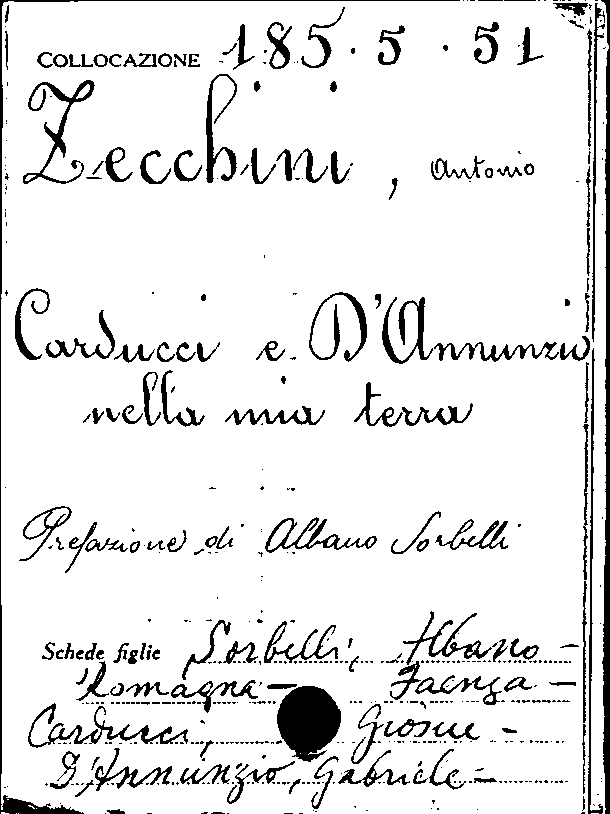 COLLOCAZIONE 185.5.51
Zecchini, Antonio
Carducci e D'Annunzio
nella mia terra
Prefazione di Albano Sorbelli
Schede figlie Sorbelli, Albano -
Romagna - Faenza -
Carducci, Giosue -
D'Annunzio, Gabriele -